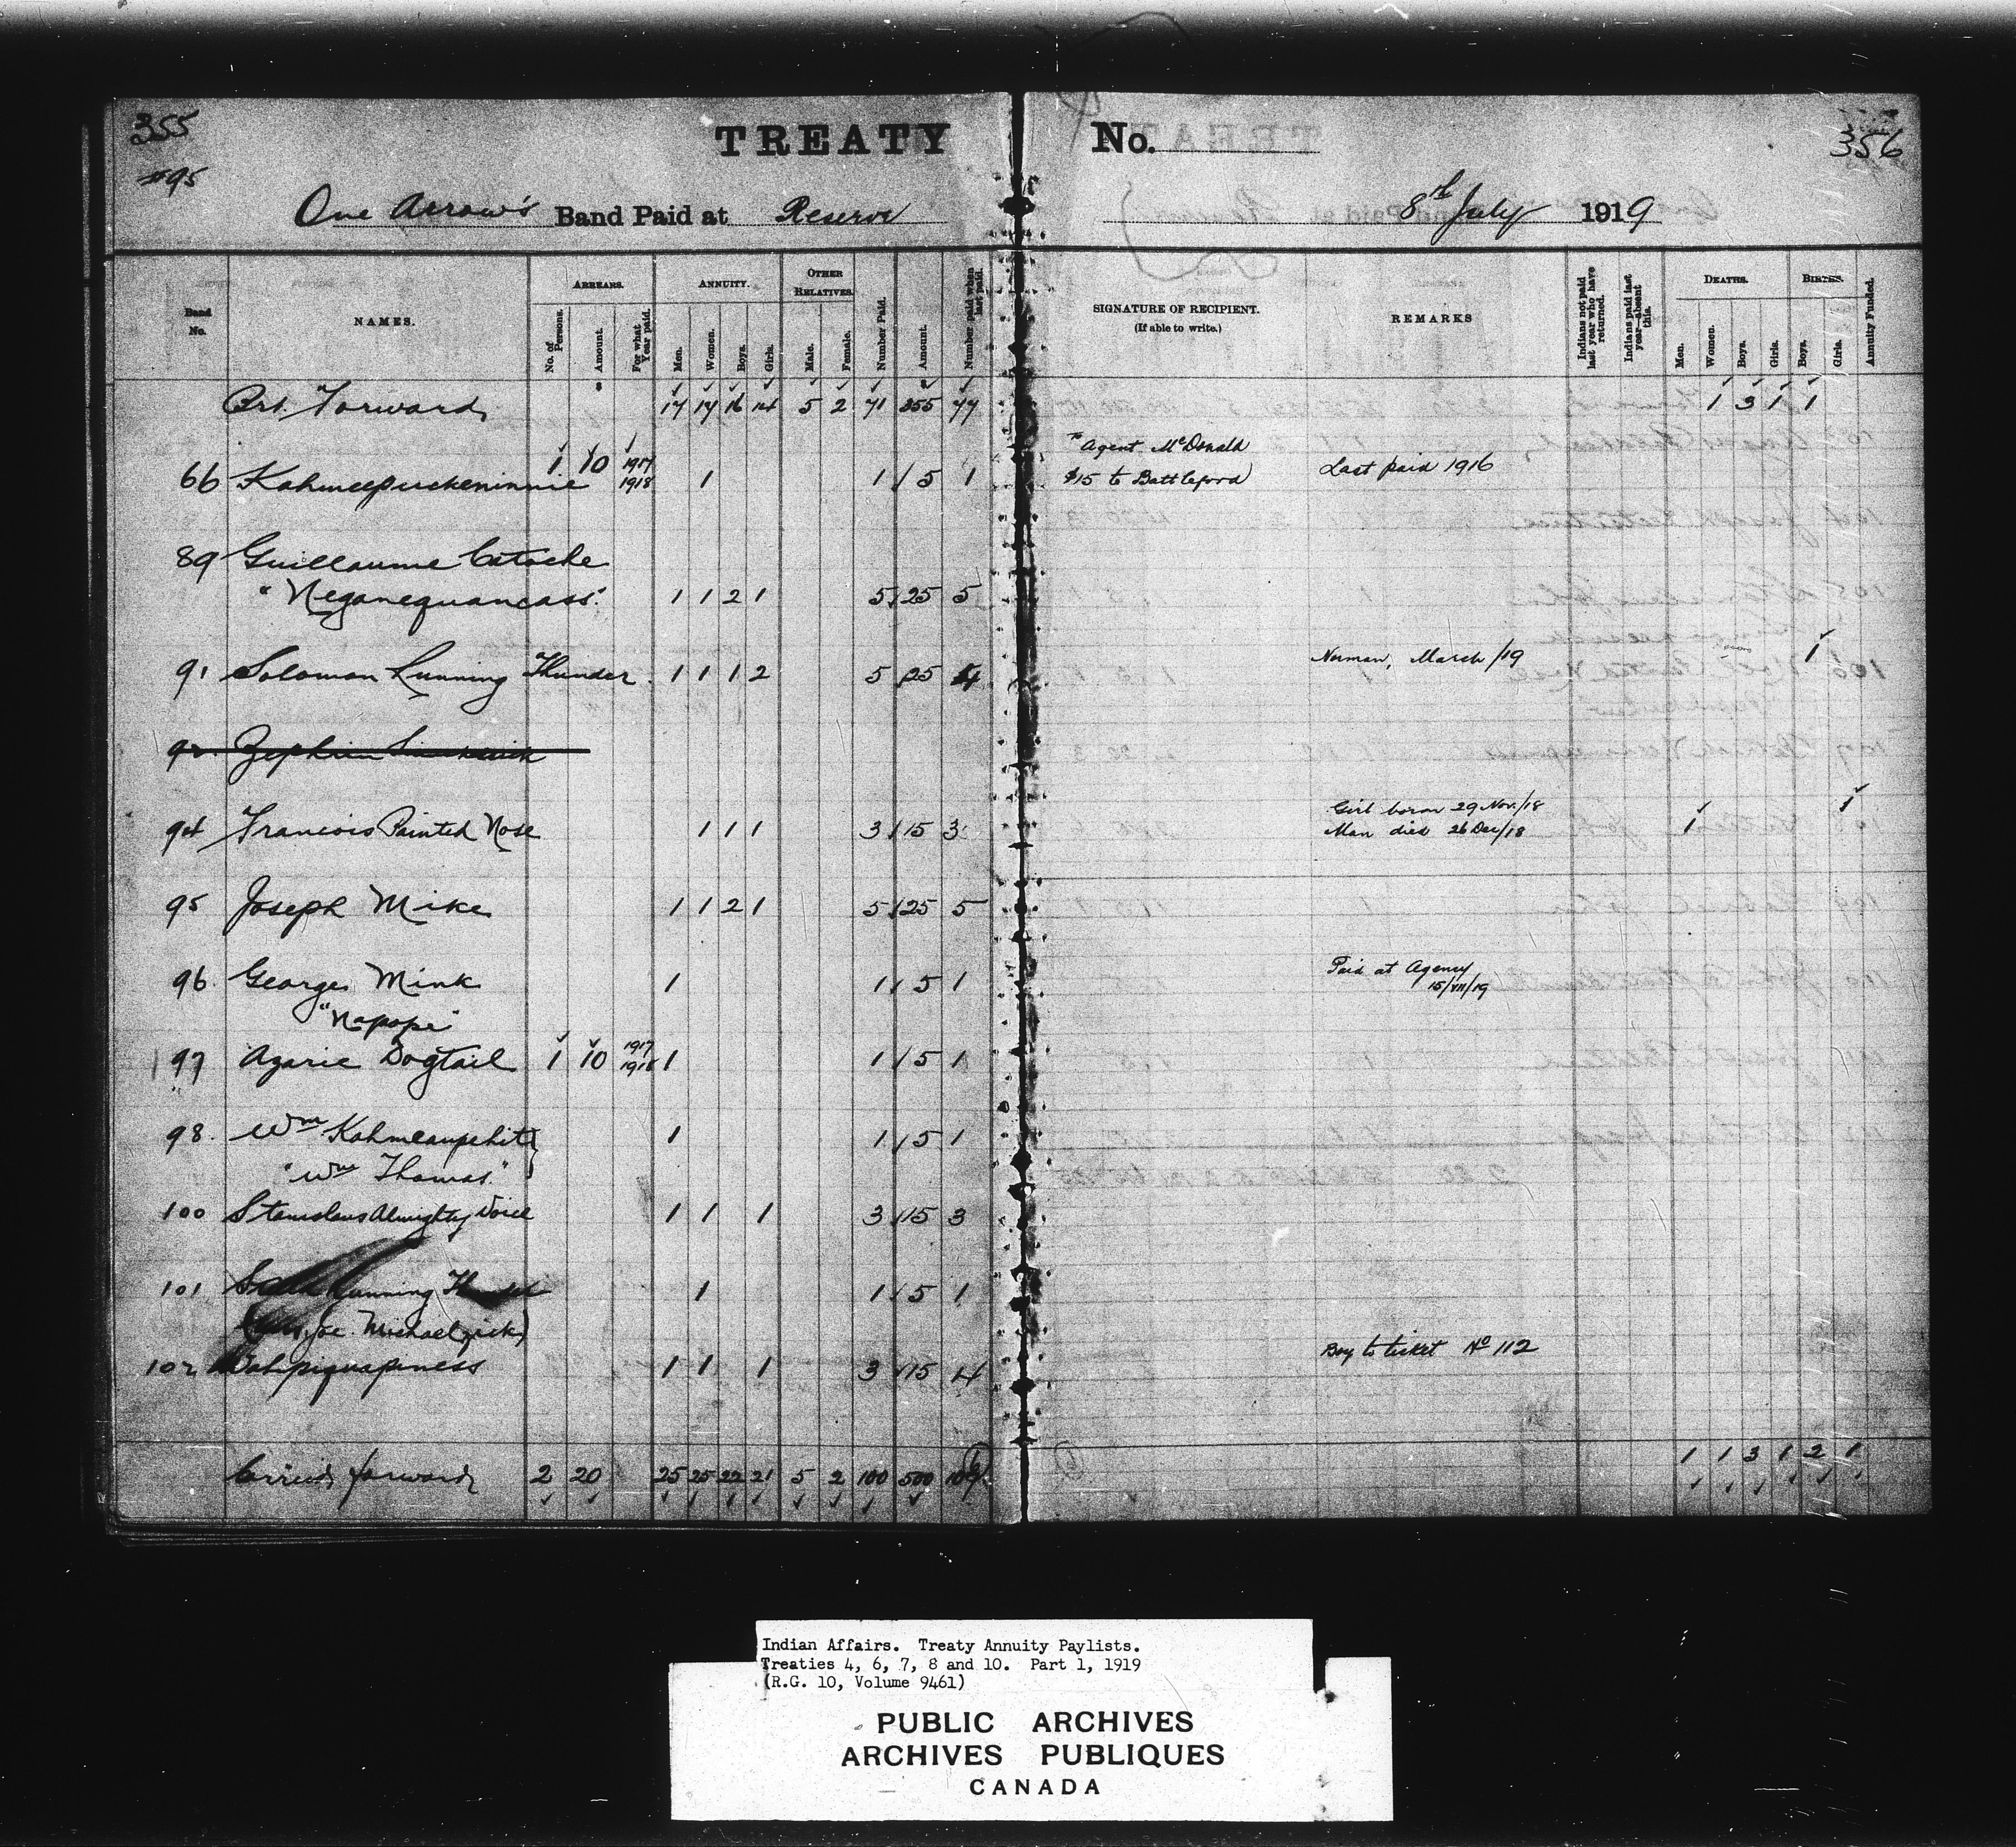 355
#95
TREATY No.
356
One Arrow's Band Paid at Reserve
8th July 1919
Band No.
NAMES.
ARREARS.
No. of Persons.
Amount.
For what Year paid.
ANNUITY.
Men.
Women.
Boys.
Girls.
OTHER RELATIVES.
Male.
Female.
Number Paid.
Amount.
Number paid when last paid.
SIGNATURE OF RECIPIENT.
(If able to write.)
REMARKS
Indians not paid last year who have returned.
Indians paid last year—absent this.
DEATHS.
Men.
Women.
Boys.
Girls.
BIRTHS.
Boys.
Girls.
Annuity Funded.
Brt. Forward 17 17 16 14 5 2 71 255 77 1 3 1 1
To Agent McDonald
66 1 10 1917 1918 1 1 5 1 $15 to Battleford Last paid 1916
89 Guillaume Catoche
"Neganequancass" 1 1 2 1 5 25 5
91 Solomon Running Thunder 1 1 1 2 5 25 4 Norman, March/19 1
92 Zephrin
Girl born 29 Nov./18 1
94 Francois Painted Nose 1 1 1 3 15 3 Man died 26 Dec/18 1
95 Joseph Mike 1 1 2 1 5 25 5
96 George Mink 1 1 5 1 Paid at Agency
15/VII/19
"Napope"
97 Azarie Dogtail 1 10 1917 1918 1 1 5 1
98. Wm Kahmeaupehit 1 1 5 1
"Wm Thomas."
100 Stanislaus Almighty Voice 1 1 1 3 15 3
101 Running Thunder 1 1 5 1
Joe Michael
102 Wahpiquapiness 1 1 1 3 15 4 Boy to ticket No 112
Carried forward 2 20 25 25 22 21 5 2 100 500 106 1 1 3 1 2 1
Indian Affairs. Treaty Annuity Paylists.
Treaties 4, 6, 7, 8 and 10. Part 1, 1919
(R.G. 10, Volume 9461)
PUBLIC ARCHIVES
ARCHIVES PUBLIQUES
CANADA